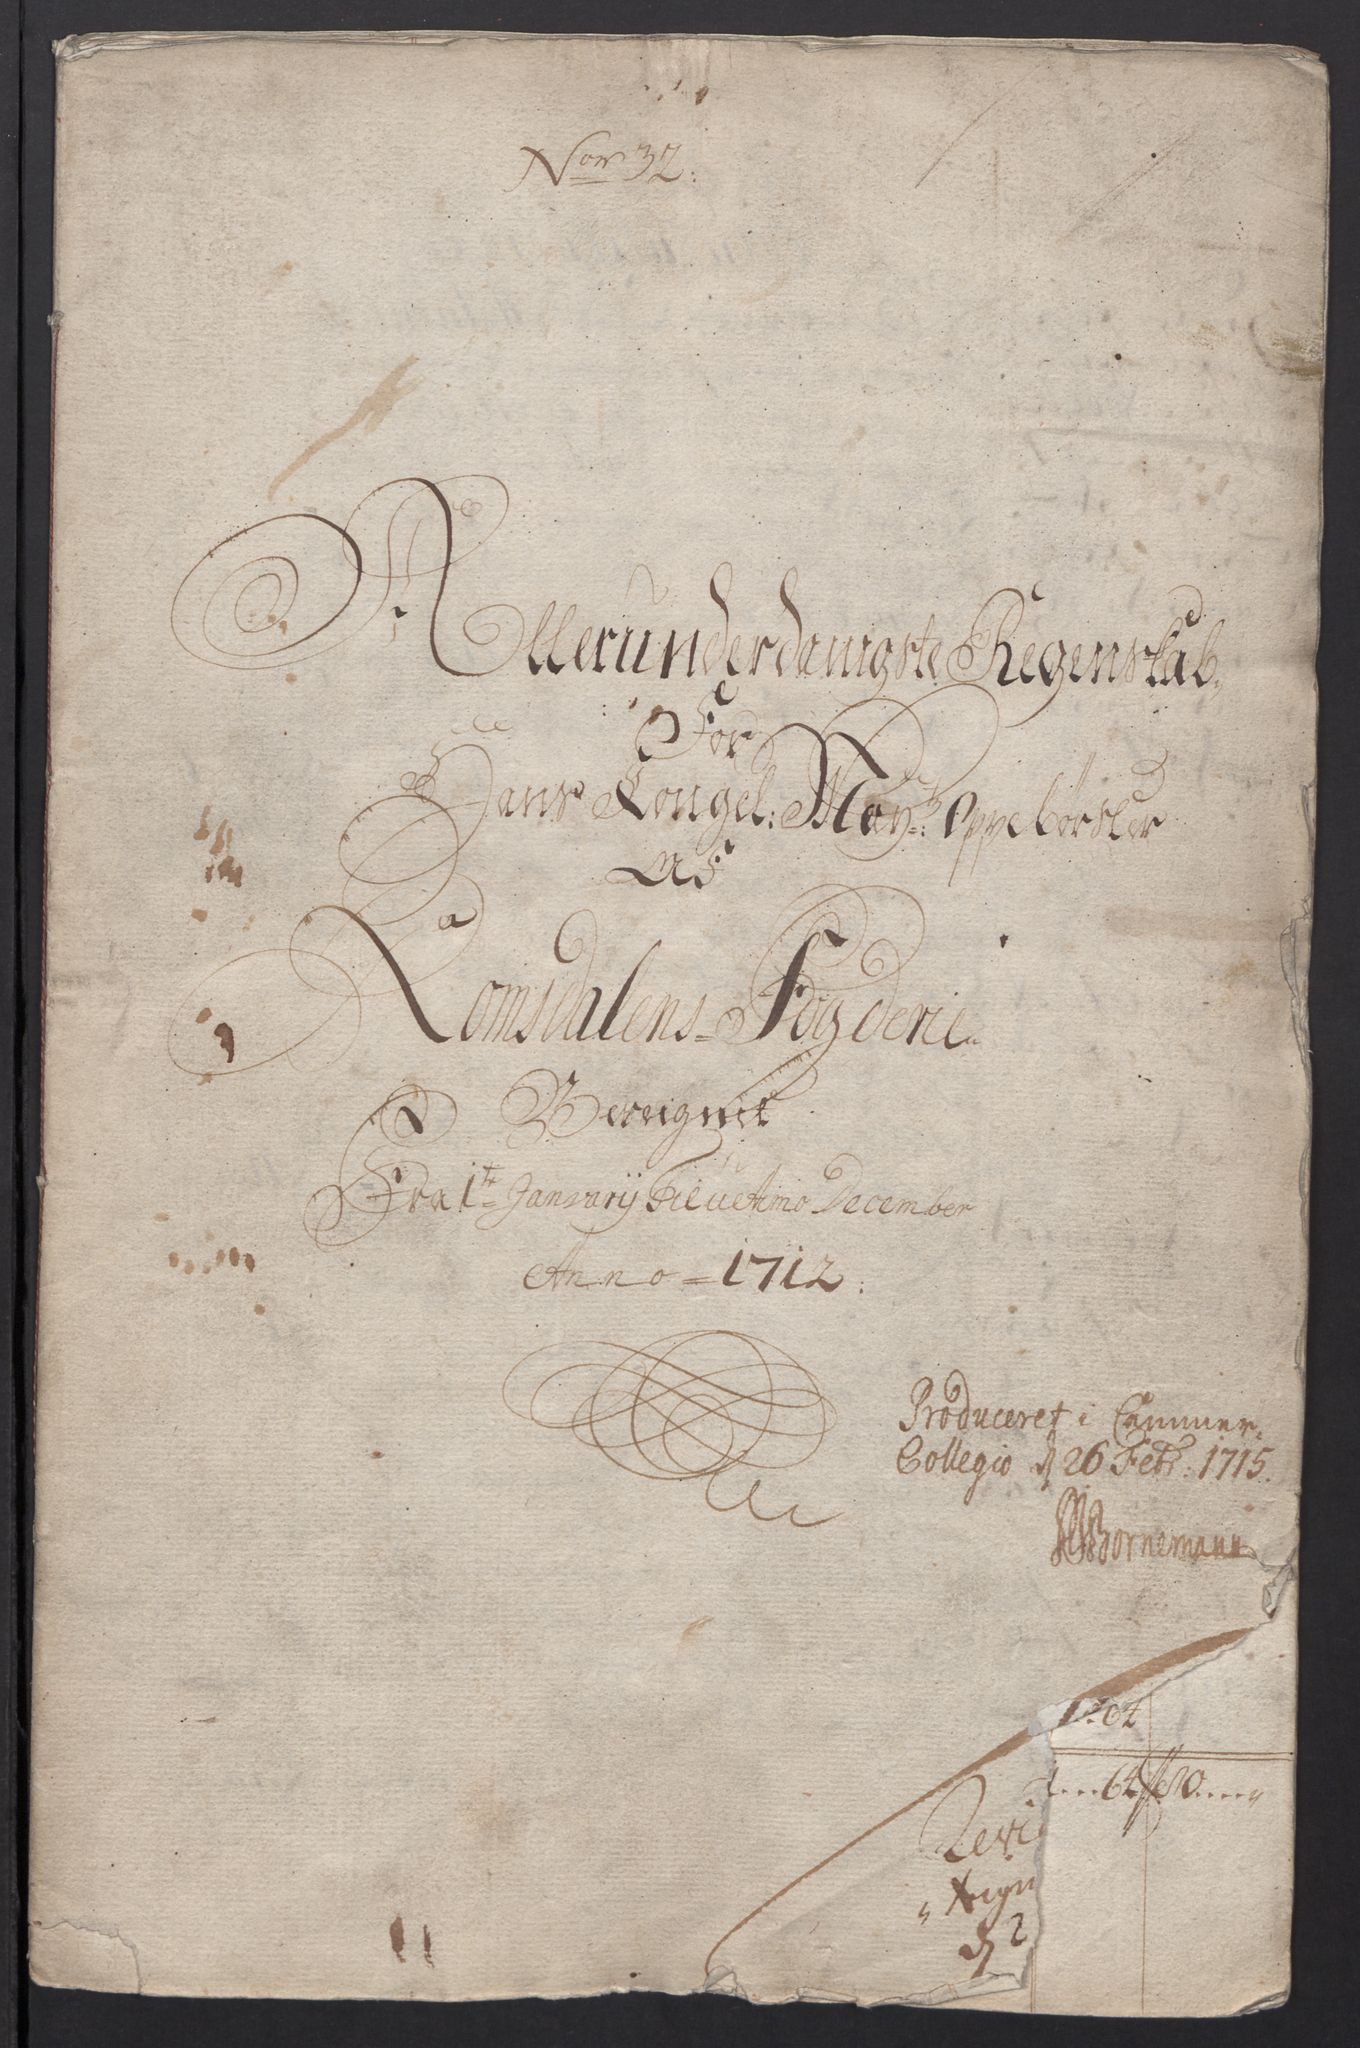 Nor 32:
Allerunderdanigste Regenskab,
For
Hans Kongel: May: Oppebörsler
Af
Romsdalens Fogderie
Beregnit
Fra 1te Januarij til ultimo December
Anno 1712:
Produceret i Cammer-
Collegio d 26 Feb: 1715.
Bornemann
64 80
d 2